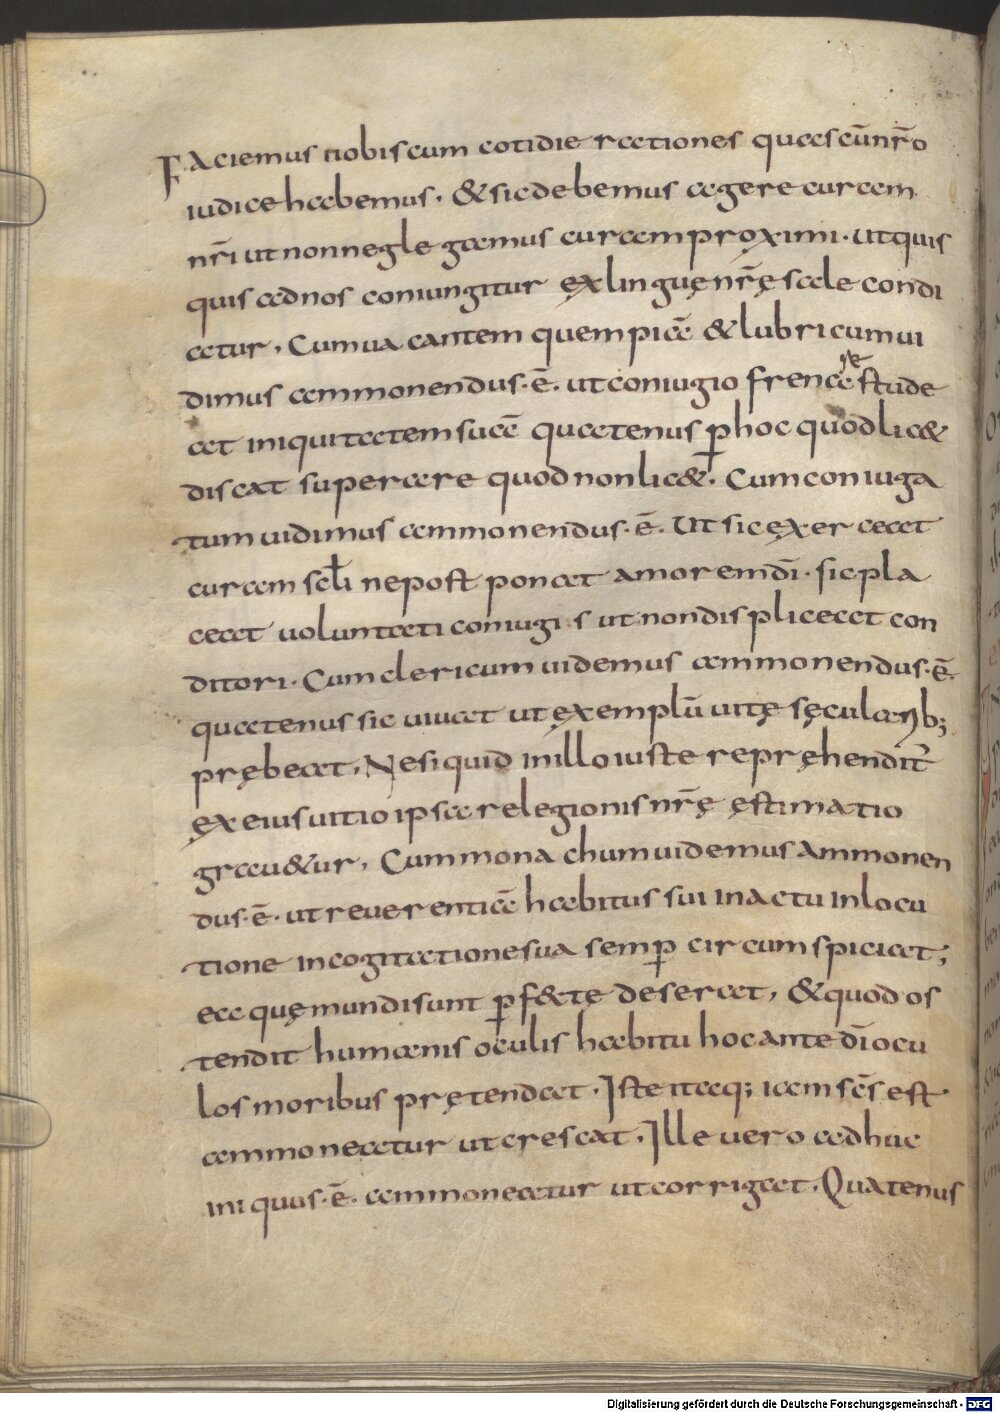 Faciemus nobiscum cotidie rationes quas cū nr̄o
iudice habemus. & sic debemus agere curam
nr̄i ut non neglegamus curam proximi. ut quis
quis ad nos coniungitur ex linguę nr̄ę sale condi
atur. Cum uacantem quempiā & lubricum ui
dimus ammonendus. ē. ut coniugio frenare stude
at iniquitatem suā quatenus ꝑ hoc quod lic&
discat superare quod non lic&. Cum coniuga
tum uidimus ammonendus. ē. Ut sic exerceat
curam scłi ne postponat amorem dī. sic pla
ceat uoluntati coniugis ut non displiceat con
ditori. Cum clericum uidemus ammonendus. ē.
quatenus sic uiuat ut exemplū uitę sęcularib;
prębeat. Ne si quid in illo iuste repręhendit̄
ex eius uitio ipsa relegionis nr̄ę ęstimatio
grau&ur. Cum monachum uidemus Ammonen
dus. ē. ut reuerentiā habitus sui in actu in locu
tione in cogitatione sua semꝑ circumspiciat;
ea quę mundi sunt ꝑf&tę deserat, & quod os
tendit humanis oculis habitu hoc ante dī ocu
los moribus prętendat. Iste itaq; iam scs̄ est.
ammoneatur ut crescat. Ille uero adhuc
iniquus. ē. ammoneatur ut corrigat. Quatenus
Digitalisierung gefördert durch die Deutsche Forschungsgemeinschaft - DFG